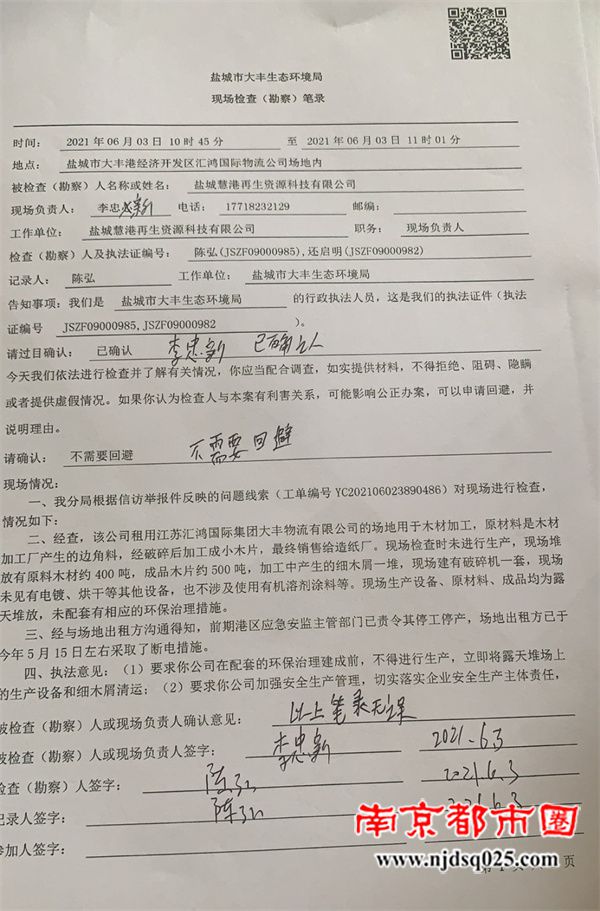 盐城市大丰生态环境局
现场检查（勘察）笔录
时间： 2021 年 06 月 03 日 10 时 45 分 至 2021 年 06 月 03 日 11 时 01 分
地点： 盐城市大丰港经济开发区汇鸿国际物流公司场地内
被检查（勘察）人名称或姓名： 盐城慧港再生资源科技有限公司
现场负责人： 李忠新 电话： 17718232129 邮编：
工作单位： 盐城慧港再生资源科技有限公司 职务： 现场负责人
检查（勘察）人及执法证编号： 陈弘(JSZF09000985),还启明(JSZF09000982)
记录人： 陈弘 工作单位： 盐城市大丰生态环境局
告知事项：我们是 盐城市大丰生态环境局 的行政执法人员，这是我们的执法证件（执法
证编号 JSZF09000985,JSZF09000982 ）。
请过目确认： 已确认 李忠新 已确认
今天我们依法进行检查并了解有关情况，你应当配合调查，如实提供材料，不得拒绝、阻碍、隐瞒
或者提供虚假情况。如果你认为检查人与本案有利害关系，可能影响公正办案，可以申请回避，并
说明理由。
请确认： 不需要回避 不需要回避
现场情况：
一、我分局根据信访举报件反映的问题线索（工单编号 YC202106023890486）对现场进行检查，
情况如下：
二、经查，该公司租用江苏汇鸿国际集团大丰物流有限公司的场地用于木材加工，原材料是木材
加工厂产生的边角料，经破碎后加工成小木片，最终销售给造纸厂。现场检查时未进行生产，现场堆
放有原料木材约 400 吨，成品木片约 500 吨，加工中产生的细木屑一堆，现场建有破碎机一套，现场
未见有电镀、烘干等其他设备，也不涉及使用有机溶剂涂料等。现场生产设备、原材料、成品均为露
天堆放，未配套有相应的环保治理措施。
三、经与场地出租方沟通得知，前期港区应急安监主管部门已责令其停工停产，场地出租方已于
今年 5 月 15 日左右采取了断电措施。
四、执法意见：（1）要求你公司在配套的环保治理建成前，不得进行生产，立即将露天堆场上
的生产设备和细木屑清运；（2）要求你公司加强安全生产管理，切实落实企业安全生产主体责任，
被检查（勘察）人或现场负责人确认意见： 以上笔录无误
被检查（勘察）人或现场负责人签字： 李忠新 2021.6.3
检查（勘察）人签字： 陈弘 2021.6.3
记录人签字： 陈弘 2021.6.3
参加人签字：
南京都市圈
www.njdsq025.com